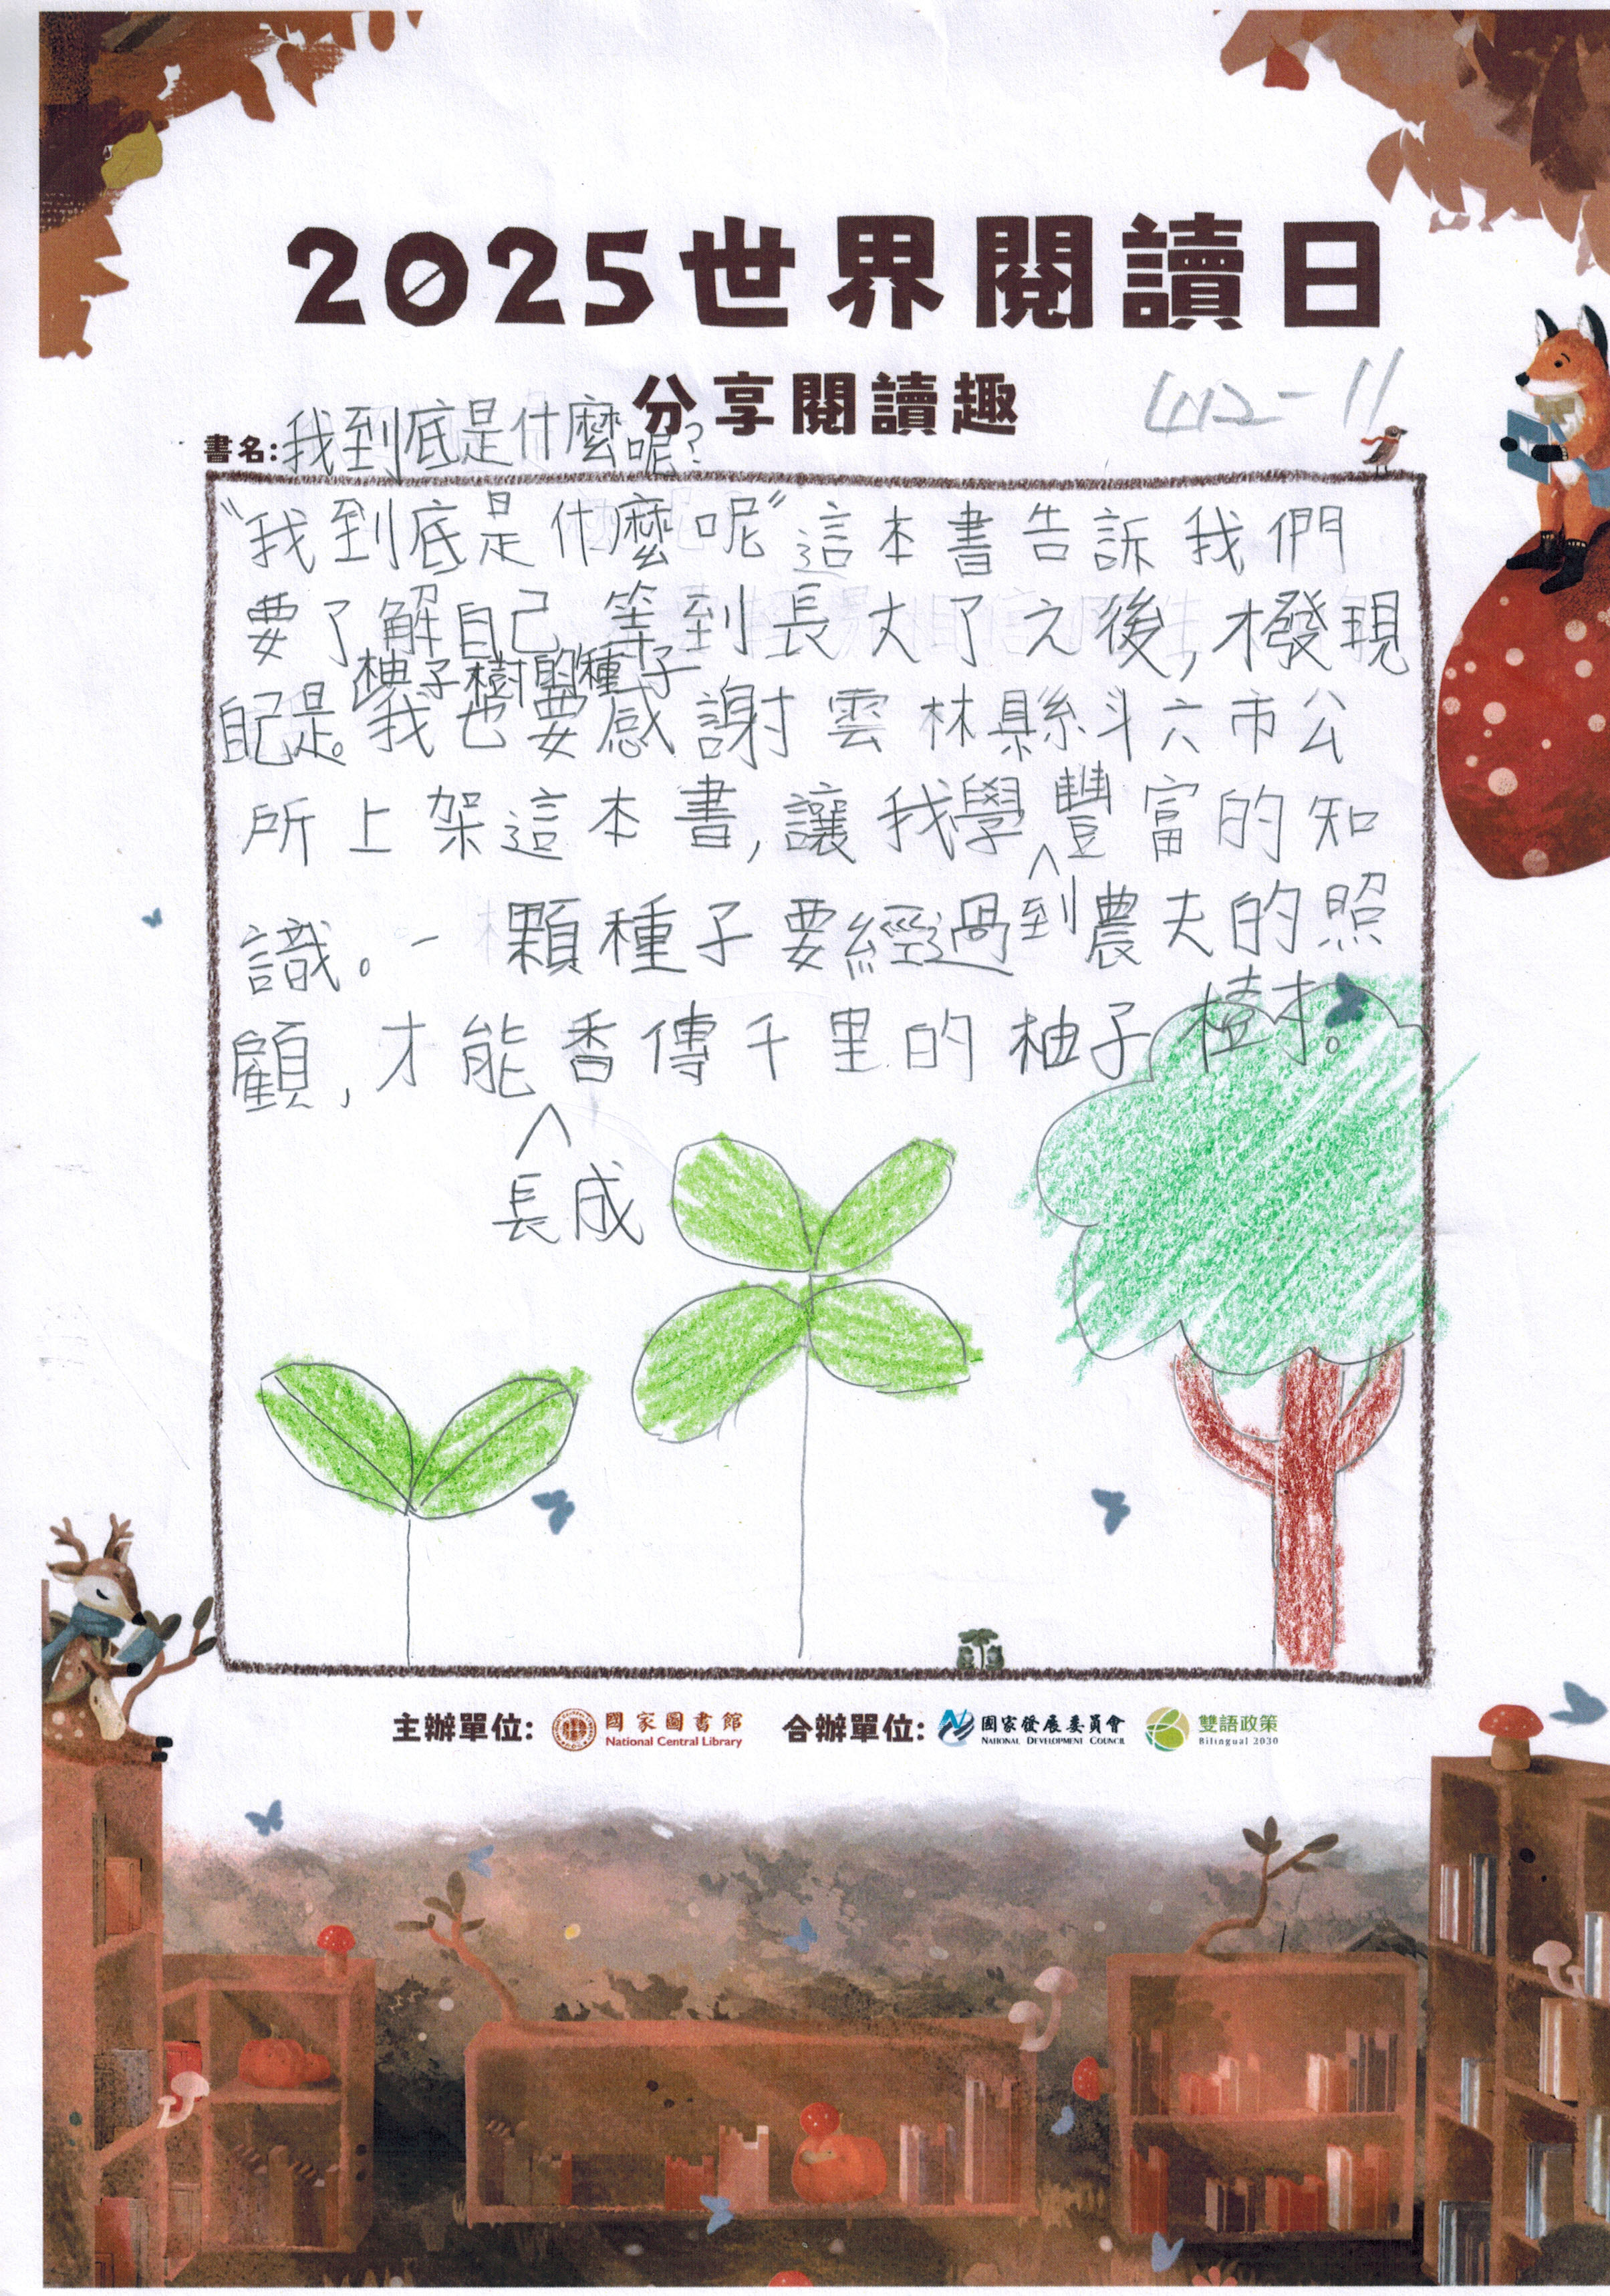 2025世界閱讀日
分享閱讀趣
412-11
書名:我到底是什麼呢?
"我到底是什麼呢"這本書告訴我們
要了解自己,等到長大了之後,才發現
自己是。我也要感謝雲林縣斗六市公
柚子樹的種子
所上架這本書,讓我學豐富的知
^到
識。一顆種子要經過農夫的照
顧,才能香傳千里的柚子樹。
^
長成
主辦單位: 國家圖書館 合辦單位: 國家發展委員會 雙語政策
National Central Library NATIONAL DEVELOPMENT COUNCIL Bilingual 2030